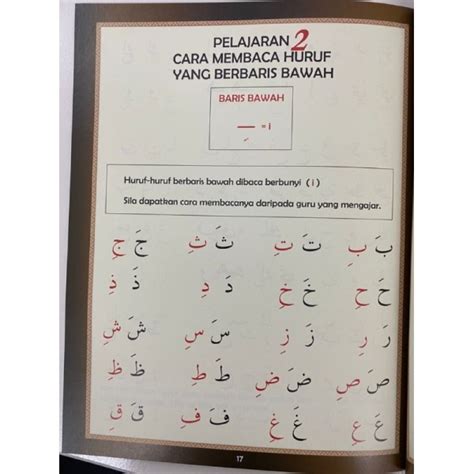 PELAJARAN 2
CARA MEMBACA HURUF
YANG BERBARIS BAWAH
BARIS BAWAH
ـِ = i
Huruf-huruf berbaris bawah dibaca berbunyi ( i )
Sila dapatkan cara membacanya daripada guru yang mengajar.
بَ بِ تَ تِ ثَ ثِ جَ جِ
حَ حِ خَ خِ دَ دِ ذَ ذِ
رَ رِ زَ زِ سَ سِ شَ شِ
صَ صِ ضَ ضِ طَ طِ ظَ ظِ
عَ عِ غَ غِ فَ فِ قَ قِ
17